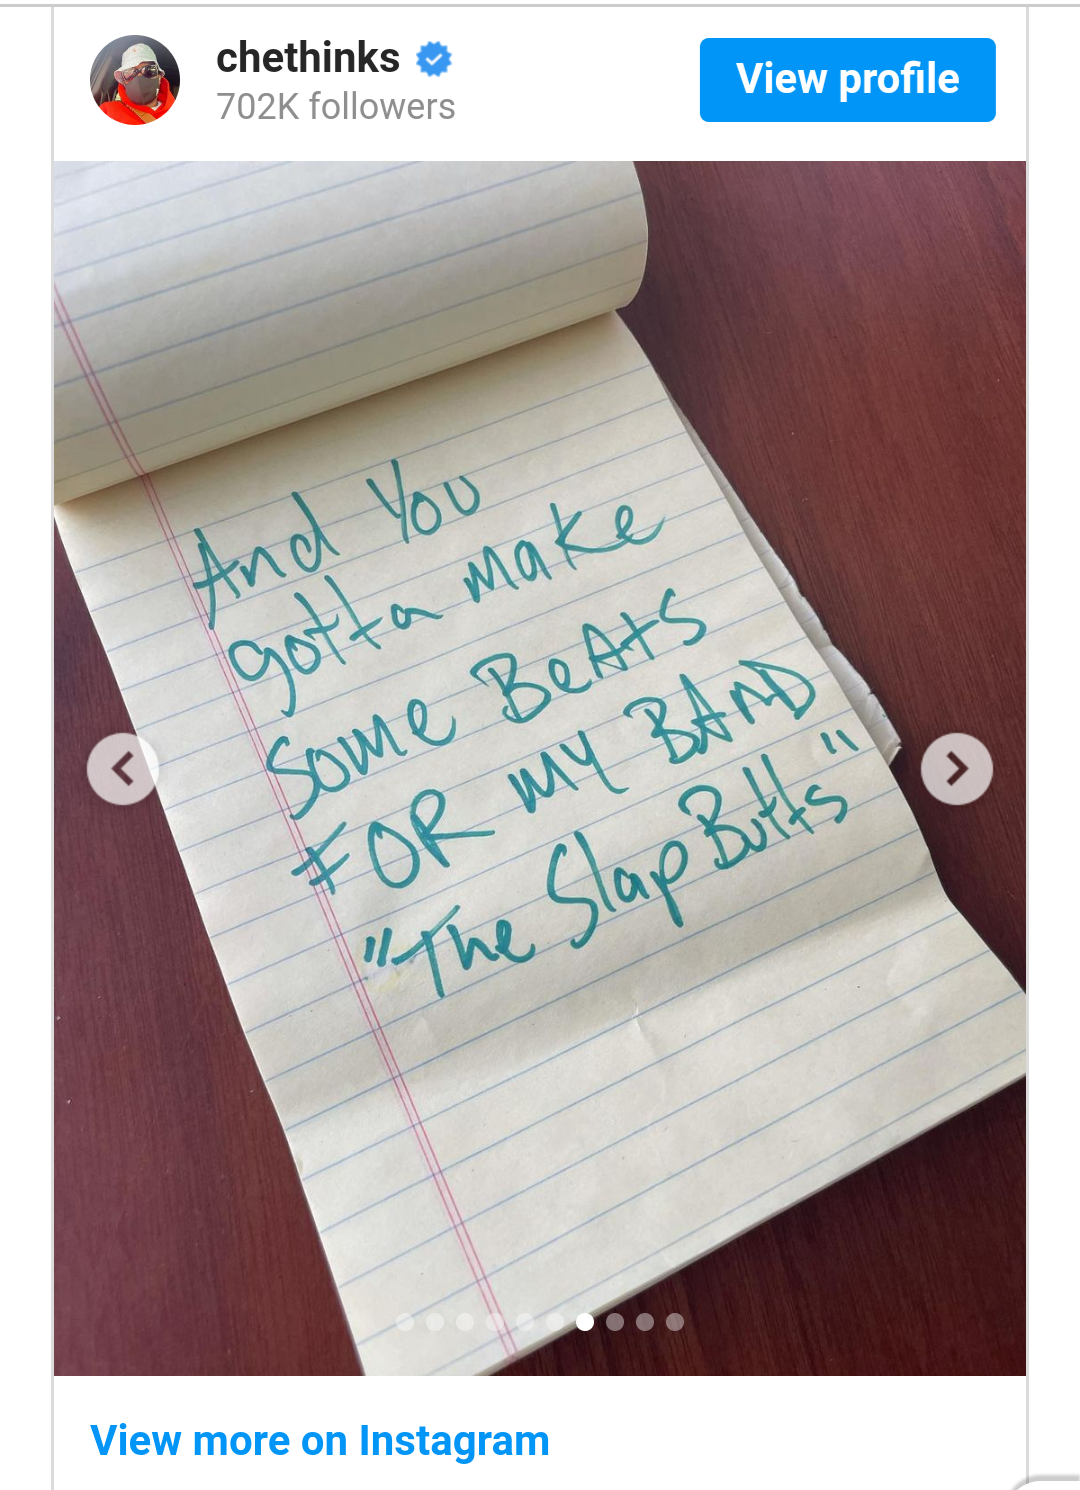 chethinks
702K followers
View profile
And You
gotta make
some BeAts
FOR MY BAND
"The Slap Butts"
View more on Instagram